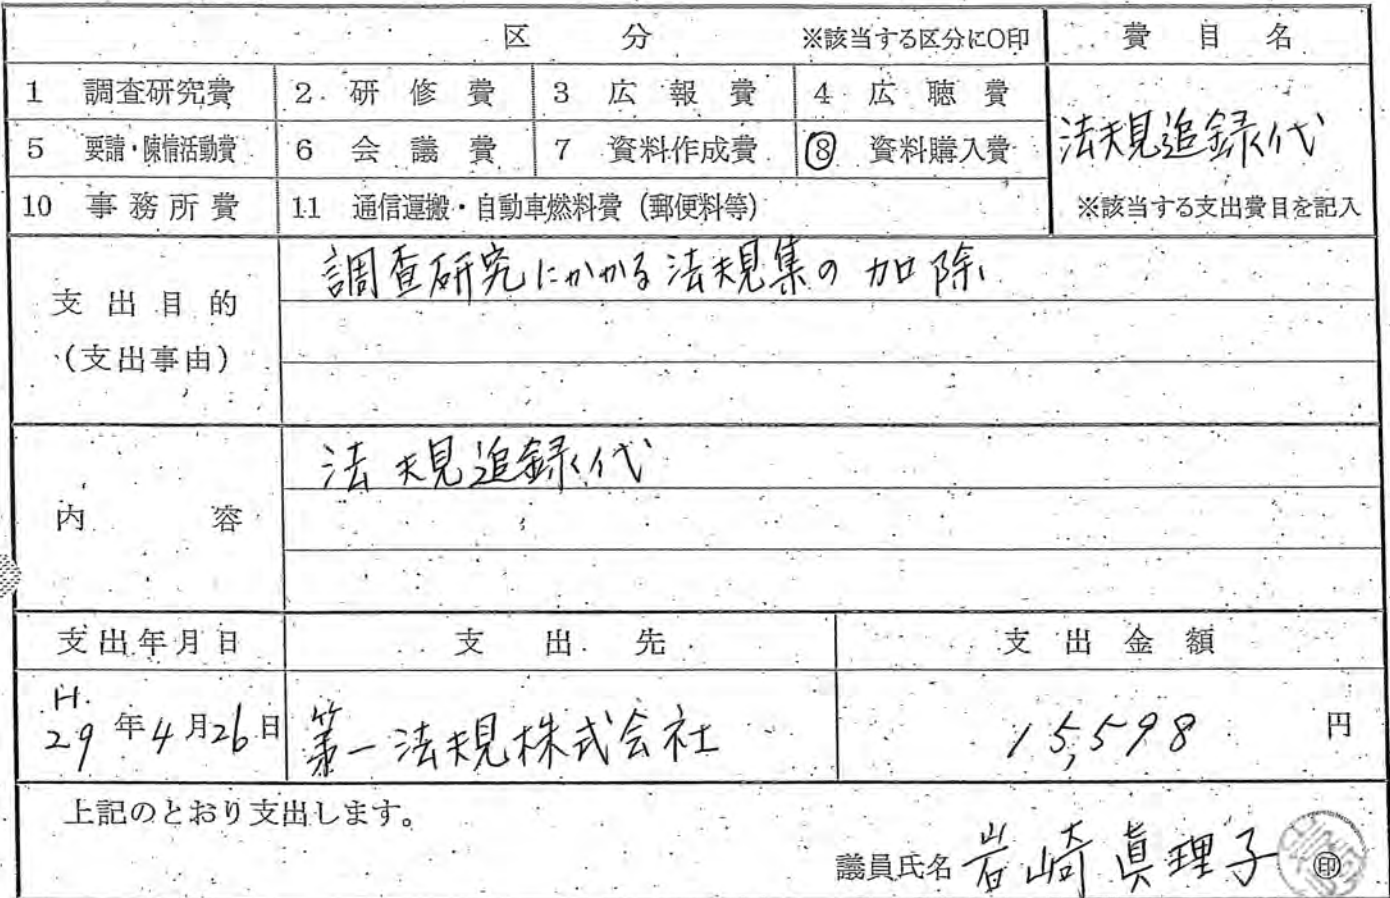 区分 ※該当する区分に○印 費目名
1 調査研究費 2 研修費 3 広報費 4 広聴費
法規追録代
5 要請・陳情活動費 6 会議費 7 資料作成費 ⑧ 資料購入費
10 事務所費 11 通信運搬・自動車燃料費（郵便料等） ※該当する支出費目を記入
調査研究にかかる法規集の加除
支出目的
（支出事由）
法規追録代
内容
支出年月日 支出先 支出金額
H.
29年4月26日 第一法規株式会社 15,598 円
上記のとおり支出します。
議員氏名 岩崎眞理子 ㊞